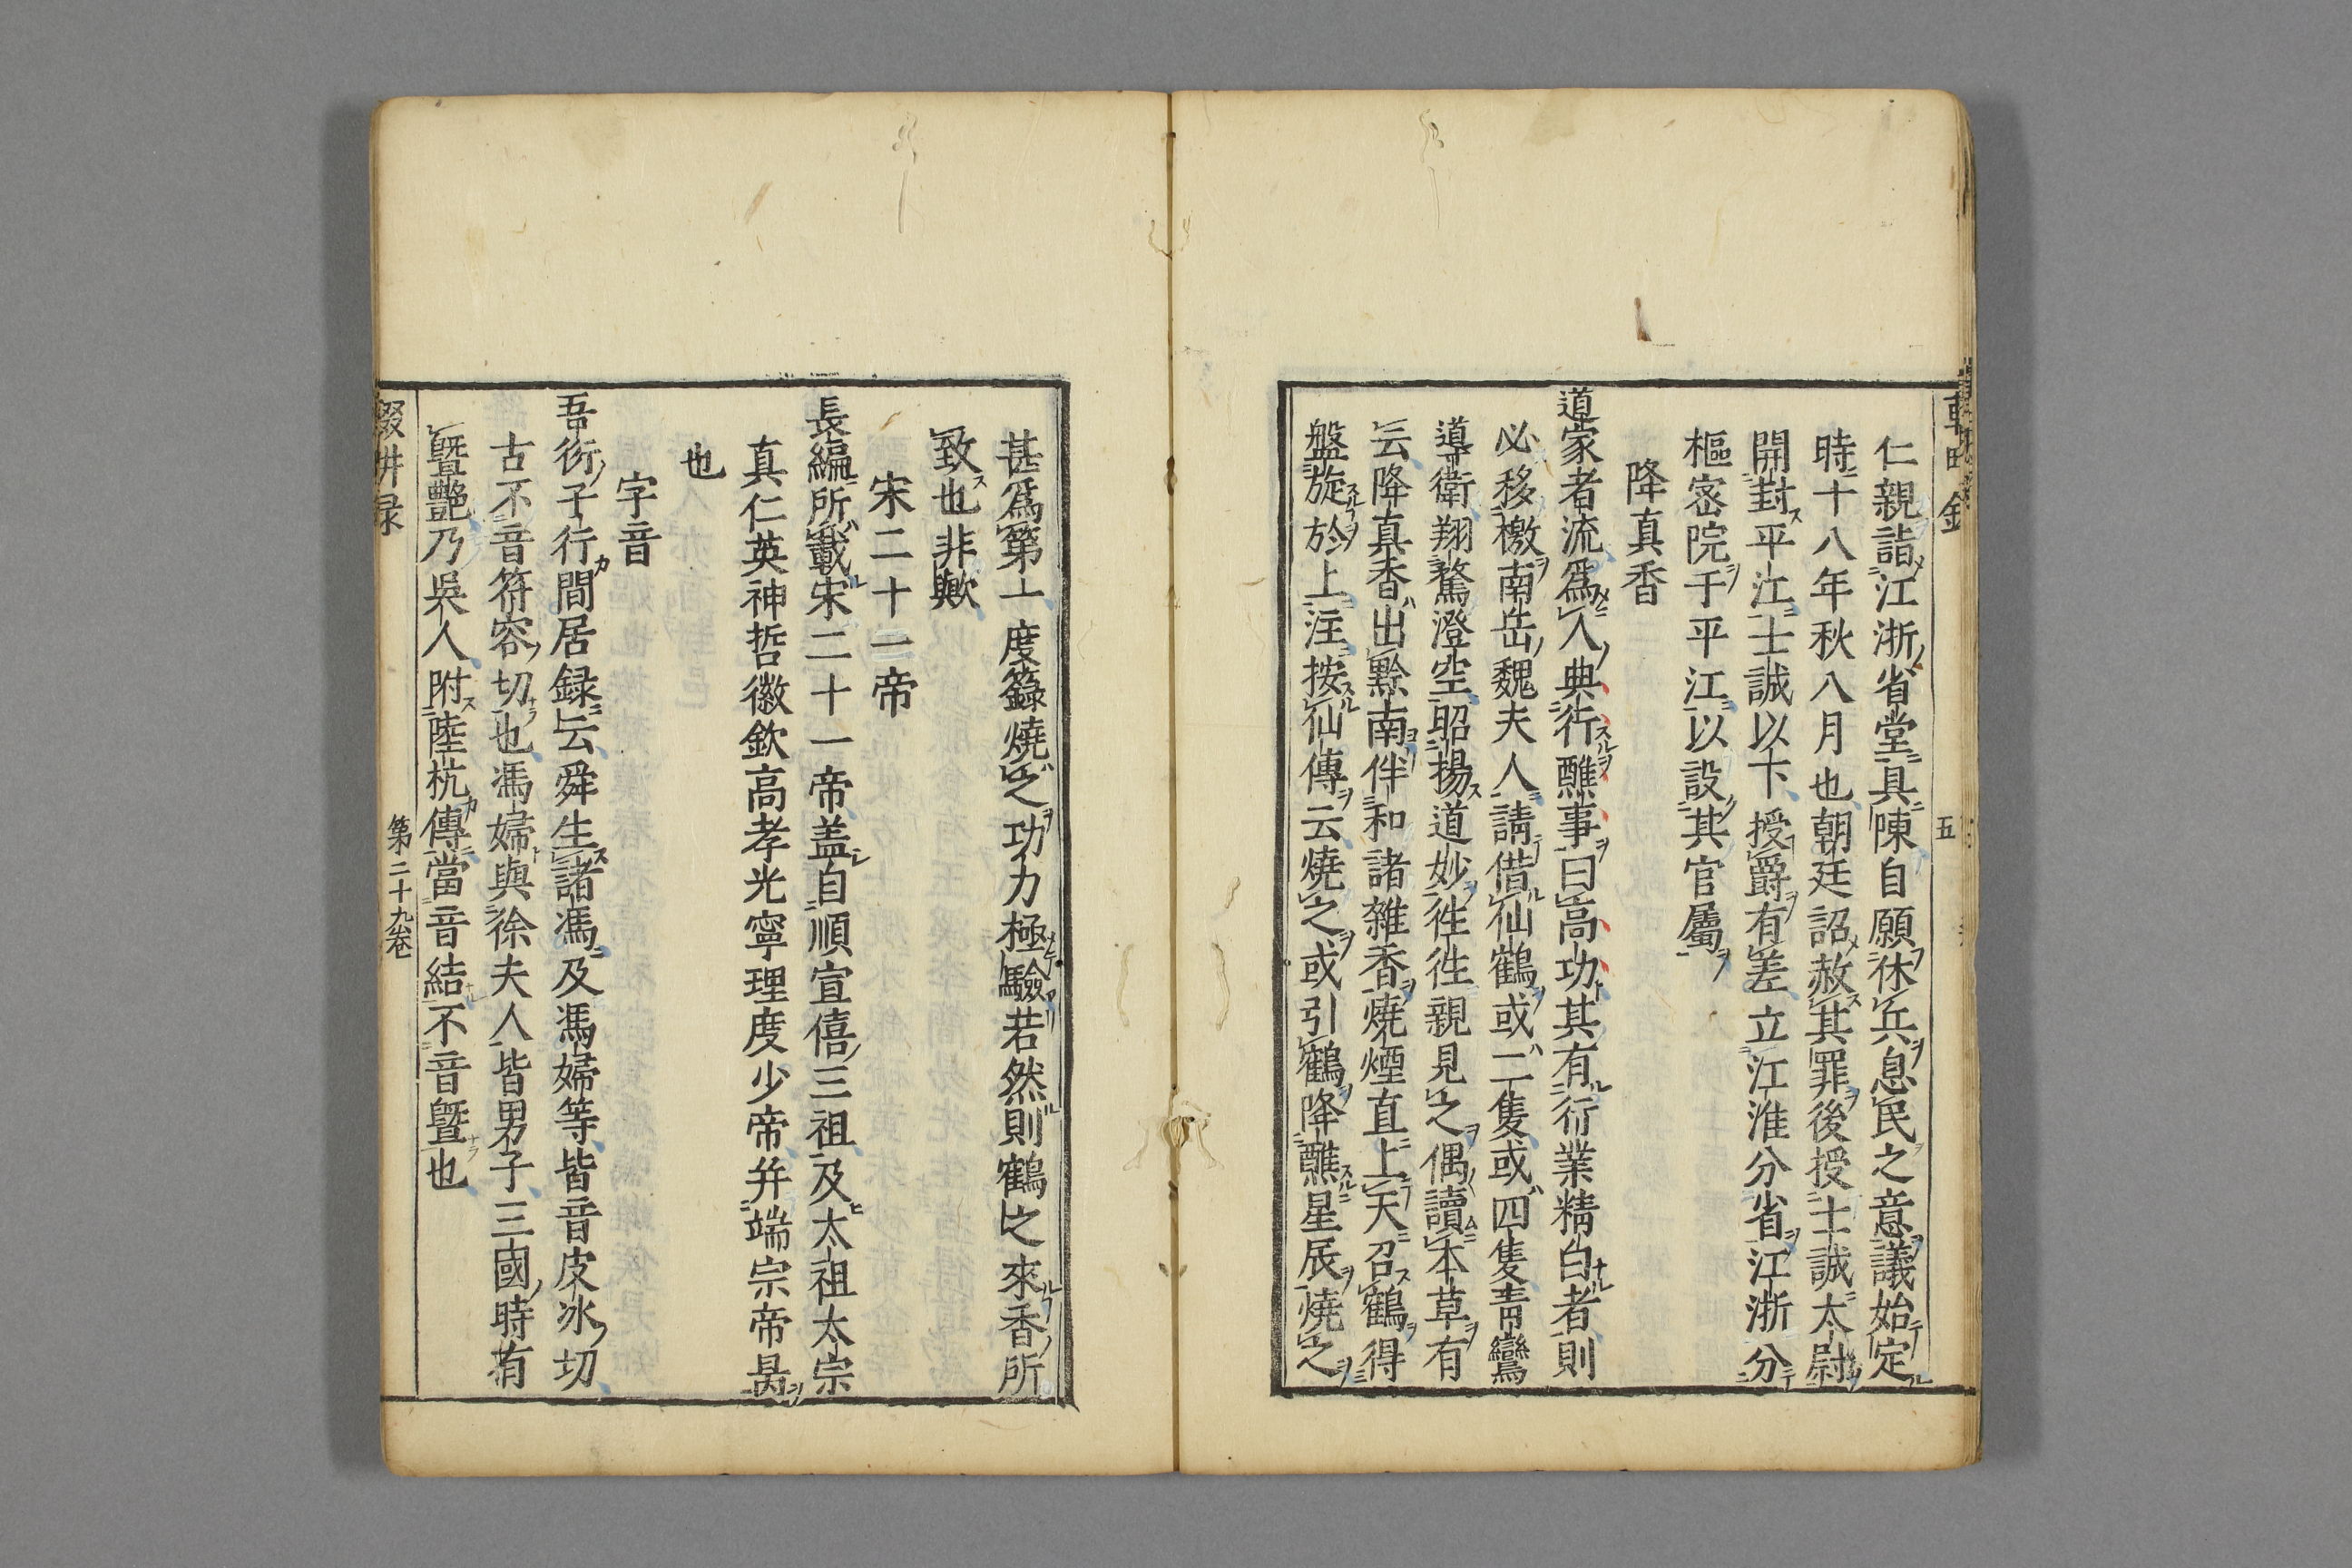 仁親詣江浙省堂具陳自願休兵息民之意議始定
時十八年秋八月也朝廷詔赦其罪後授士誠太尉
開封平江士誠以下授爵有差立江淮分省江浙分
樞宻院于平江以設其官屬
降真香
道家者流爲人典行醮事曰高功其有行業精白者則
必移檄南岳魏夫人請借仙鶴或二隻或四隻青鸞
導衛翔鶩澄空昭揚道妙徃徃親見之偶讀本草有
云降真香出黔南伴和諸雜香燒煙直上天召鶴得
盤旋於上注按仙傳云燒之或引鶴降醮星辰燒之
甚爲第一度籙燒之功力極驗若然則鶴之來香所
致也非歟
宋二十一帝
長編所載宋二十一帝盖自順宣僖三祖及太祖太宗
真仁英神哲徽欽高孝光寧理度少帝并端宗帝昺
也
字音
吾衍子行間居録云舜生諸馮及馮婦等皆音皮冰切
古不音符容切也馮婦與徐夫人皆男子三國時有
曁艷乃吳人附陸杭傳當音結不音曁也
輟畊録
第二十九卷
五